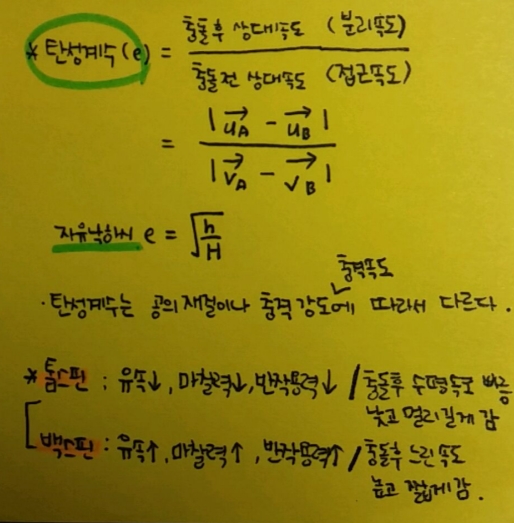 * 탄성계수(e) = 충돌후 상대속도 (분리속도) / 충돌전 상대속도 (접근속도)
= |u_A→ - u_B→| / |v_A→ - v_B→|
자유낙하시 e = √(h/H)
충격속도
· 탄성계수는 공의재질이나 충격강도에 따라서 다르다.
* 톱스핀 ; 유속↓, 마찰력↓, 반작용력↓ / 충돌후 수평속도 빠름
낮고 멀리길게 감
백스핀 : 유속↑, 마찰력↑, 반작용력↑ / 충돌후 느린속도
높고 짧게감.